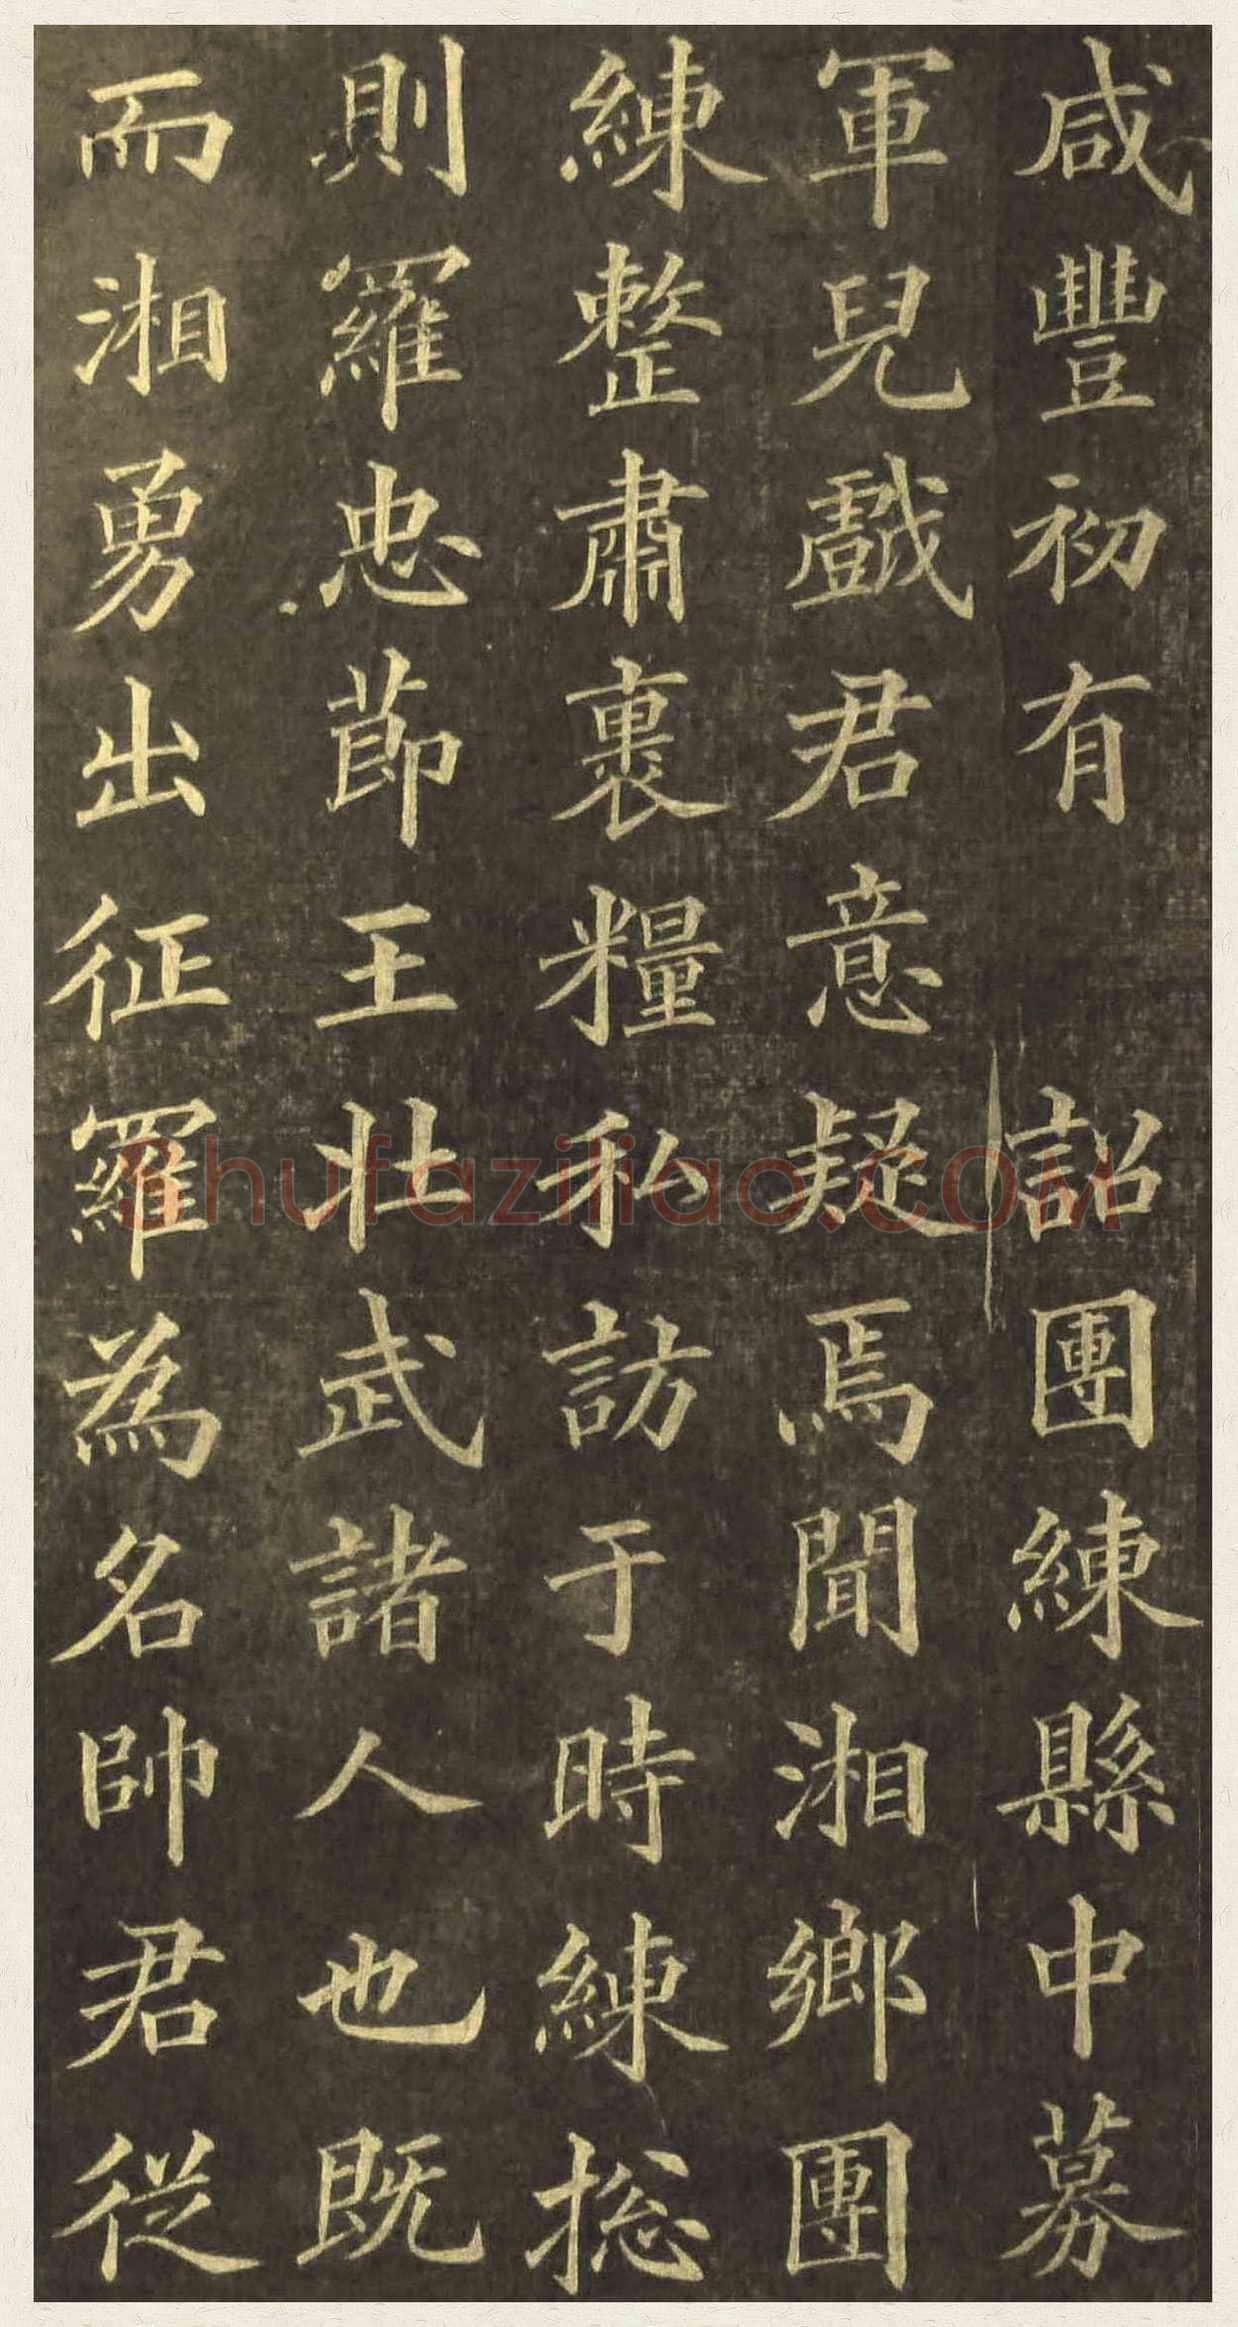 咸豐初有　詔團練縣中募
軍兒戲君意疑焉聞湘鄉團
練整肅裹糧私訪于時練摠
則羅忠節王壯武諸人也既
而湘勇出征羅為名帥君從
Shufaziliao.COM